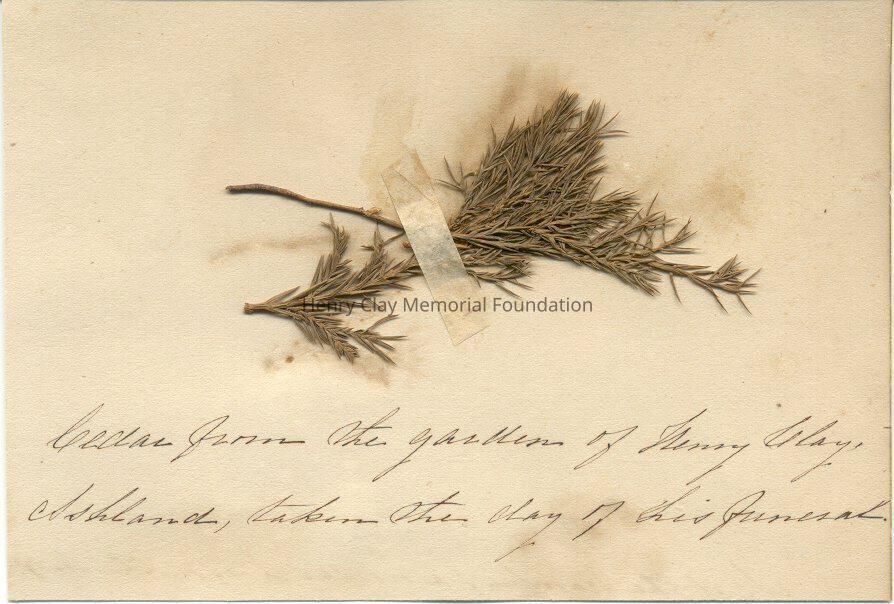 Henry Clay Memorial Foundation
Cedar from the garden of Henry Clay,
Ashland, taken the day of his funeral.